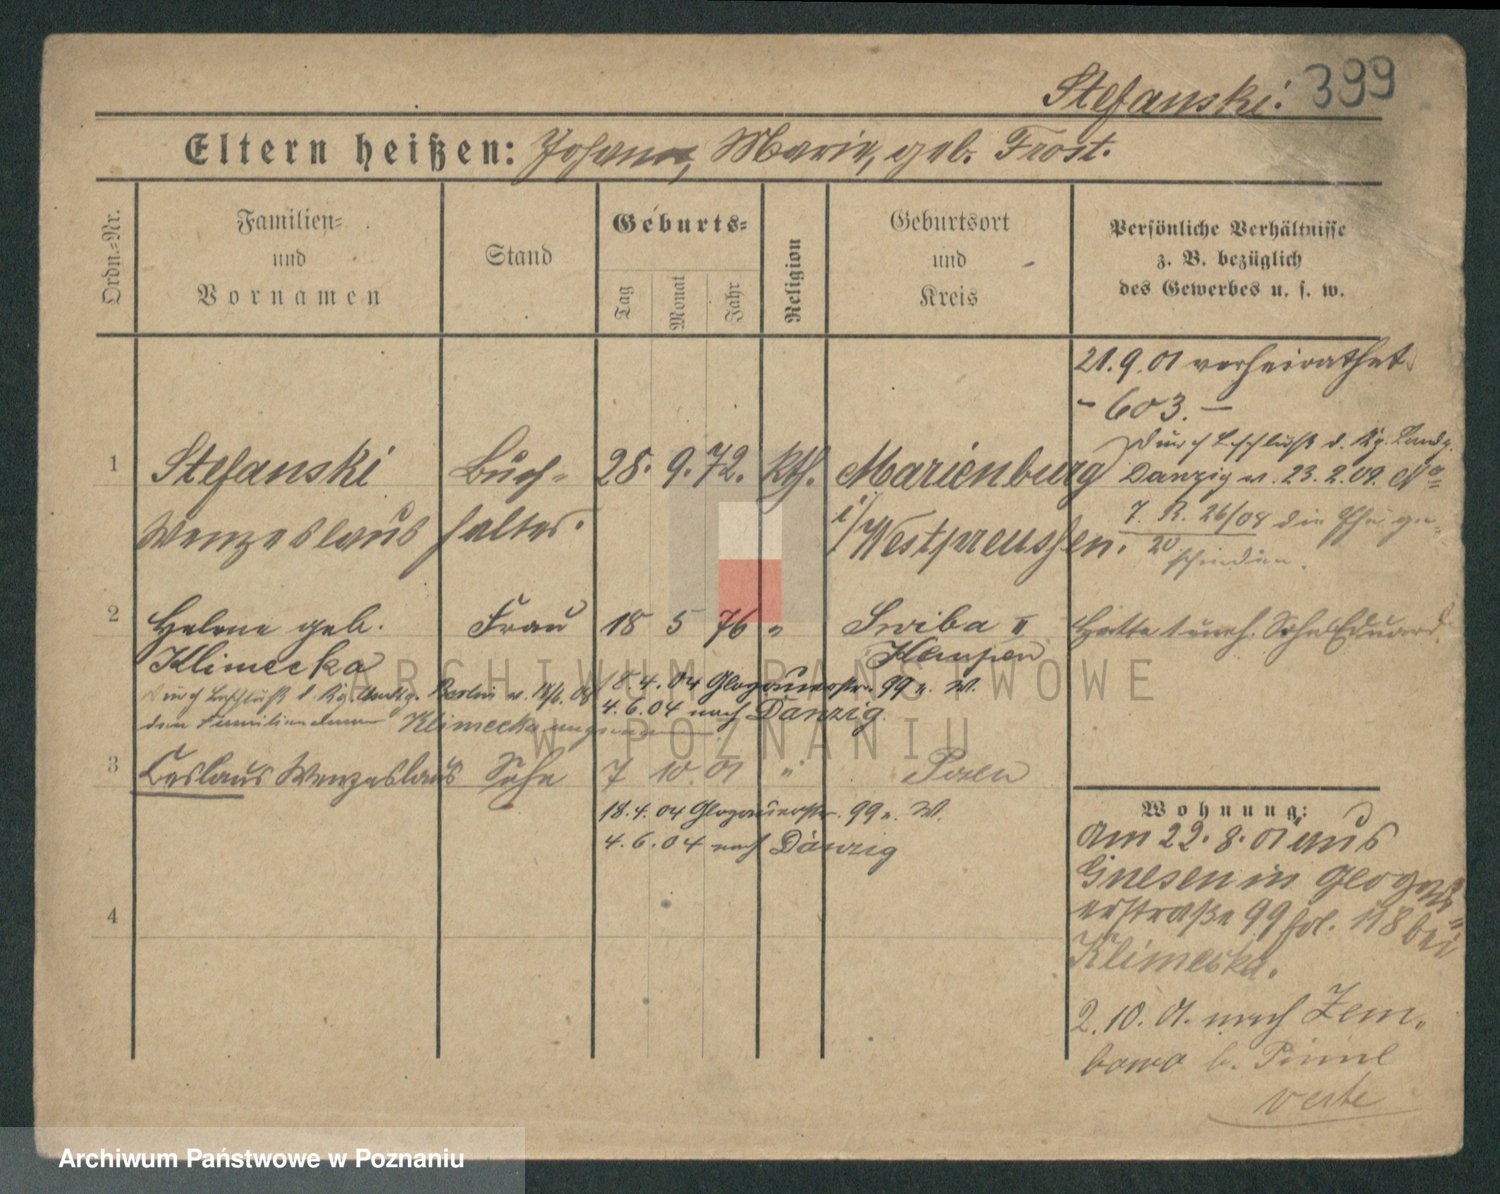 Stefanski. 399
Eltern heißen: Johann, Marie, geb. Frost.
Ordn.-Nr.
Familien-
und
Vornamen
Stand
Geburts-
Tag
Monat
Jahr
Religion
Geburtsort
und
Kreis
Persönliche Verhältnisse
z. B. bezüglich
des Gewerbes u. s. w.
21.9.01 verheirathet.
- 603. -
1 Stefanski Buch- 28. 9. 72. Kth. Marienburg
Wenzeslaus halter. i/Westpreussen.
Durch Beschluß d. Kg. Landg.
Danzig v. 23.2.09.
7. R. 26/08 die Ehe ge-
20 schieden.
2 Helene geb. Frau 18 5 76 " Swiba II
Klimecka Kempen
Hatte 1 uneh. Sohn Eduard.
Durch Beschluß d. Kg. Berlin v.
dem Familiennamen Klimecka
18.4.04 Glogauerstr. 99 v. W.
4.6.04 nach Danzig.
3 Ceslaus Wenzeslaus Sohn 7 10 01 " Posen
18.4.04 Glogauerstr. 99 v. W.
4.6.04 nach Danzig
4
Wohnung:
Am 22.8.01 aus
Gnesen in Glogau-
erstraße 99 fol. 118 bei
Klimecka.
2.10.01. nach Zem-
bowo b. Pinne
verte
ARCHIWUM PAŃSTWOWE
W POZNANIU
Archiwum Państwowe w Poznaniu